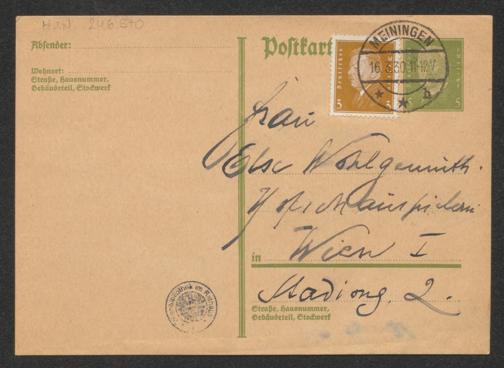 H.I.N. 246570
Absender:
Wohnort:
Straße, Hausnummer,
Gebäudeteil, Stockwerk
Postkarte
MEININGEN
Deutsches Reich
5
5
5
Frau
Else Wohlgemuth
Hofschauspielerin
in Wien I
Stadiong. 2.
Straße, Hausnummer,
Gebäudeteil, Stockwerk